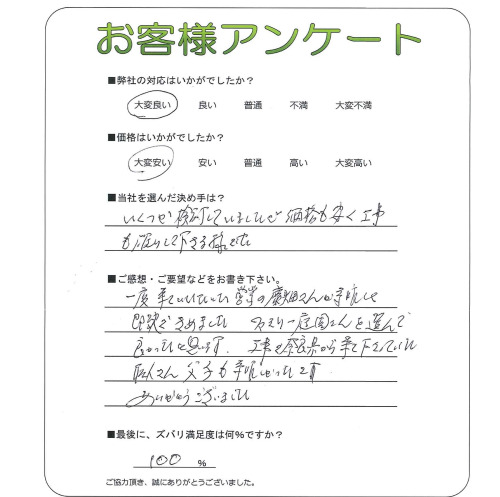 お客様アンケート
■弊社の対応はいかがでしたか？
大変良い 良い 普通 不満 大変不満
■価格はいかがでしたか？
大変安い 安い 普通 高い 大変高い
■当社を選んだ決め手は？
いくつか検討していましたが価格も安く工事
もしっかりして下さる様でした
■ご感想・ご要望などをお書き下さい。
一度来ていただいた営業の さんが
即決できめました 庭園さんを選んで
良かったと思います。工事も奈良県から来て下さっていた
職人さん 父子も
ありがとうございました
■最後に、ズバリ満足度は何％ですか？
100 ％
ご協力頂き、誠にありがとうございました。